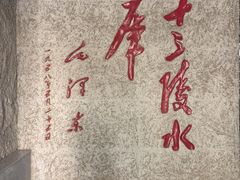 十三陵水
库
毛泽东
一九五八年五月二十五日